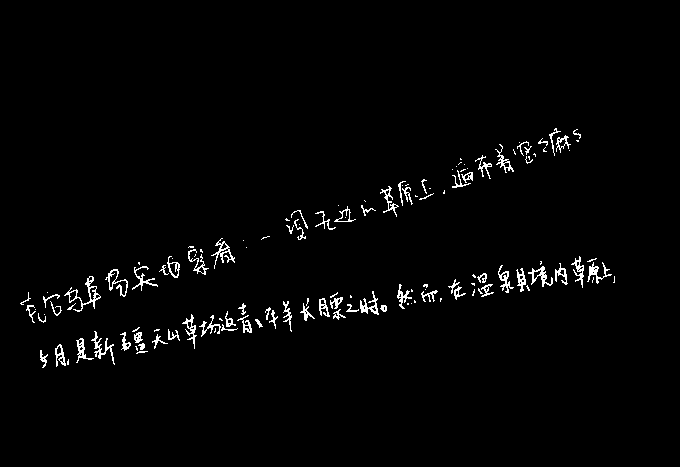 克尔乌草场实地察看:一望无边的草原上,遍布着密密麻麻
5月,是新疆天山草场返青、牛羊长膘之时。然而,在温泉县境内草原上,